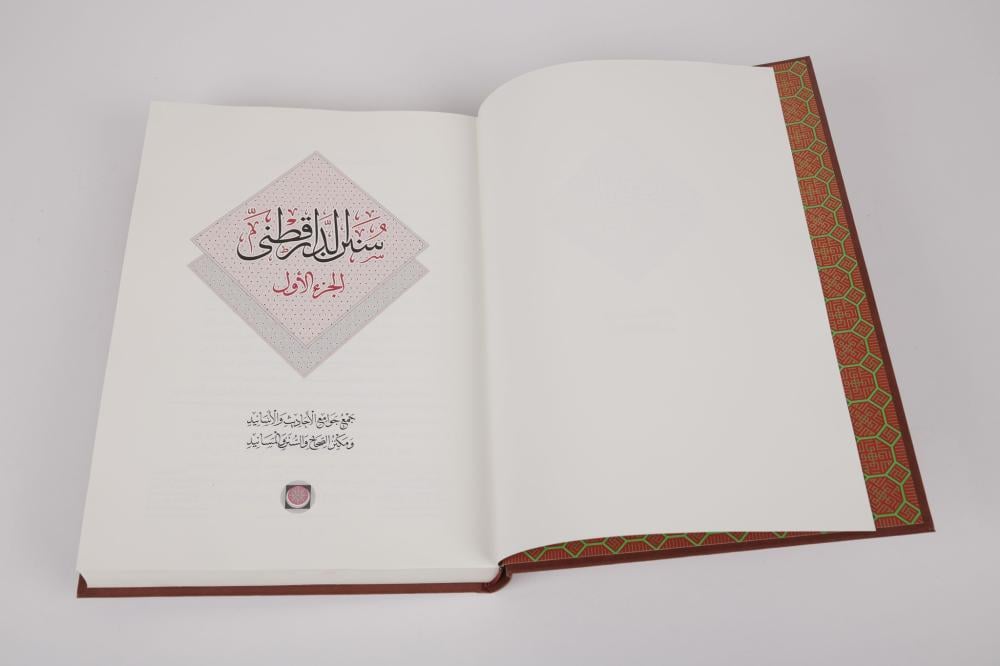 سُنَن الدَّارقطنى
الجزء الأول
جَمْعُ جَوَامِعِ الأَحَادِيثِ وَالأَسَانِيدِ
وَمَكْنِزُ الصِّحَاحِ وَالسُّنَنِ وَالمَسَانِيدِ